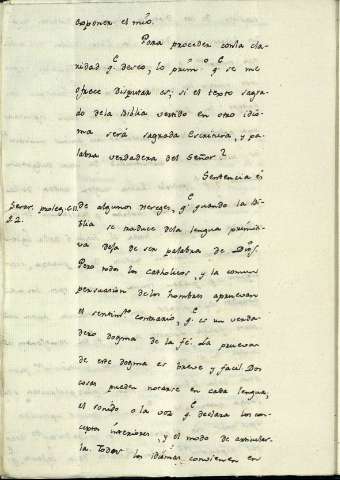 exponer el mío.
Para proceder con la cla-
ridad q.e deseo, lo prim.o q.e se me
ofrece disputar es, si el texto sagra-
do de la Biblia vertido en otro idio-
ma será sagrada Escritura, y pa-
labra verdadera del Señor?
Sentencia es
de algunos Hereges, q.e quando la Bi-
blia se traduce de la lengua primiti-
va deja de ser palabra de Dios.
Pero todos los Catholicos, y la comun
persuasión de los hombres aprueban
el sentim.to contrario, q.e es un verda-
dero dogma de la fé. La prueva
de este dogma es breve y facil. Dos
cosas pueden notarse en cada lengua,
el sonido o la voz q.e declara los con-
ceptos interiores, y el modo de articular-
la. Todos los idiomas convienen en
Serar. proleg. c.
22.